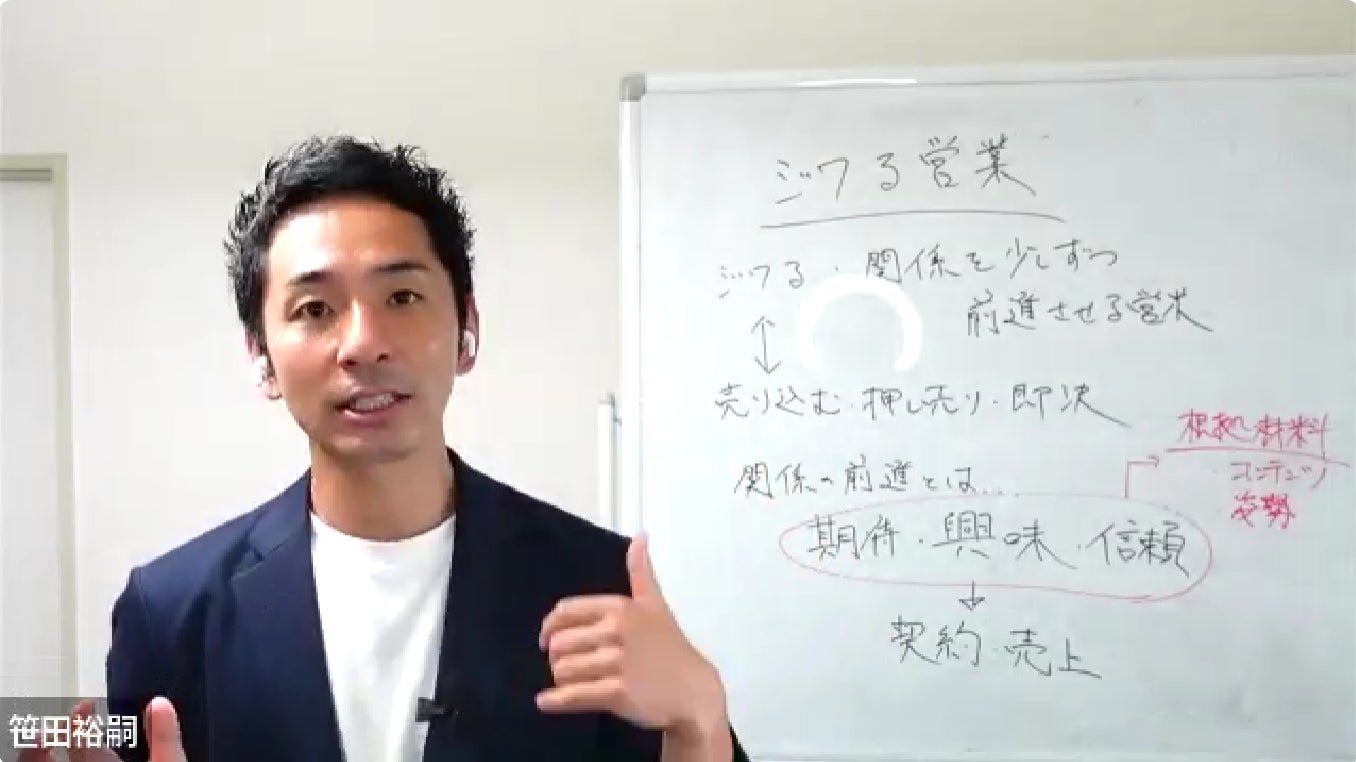 ジワる営業
ジワる・関係を少しずつ
前進させる営業
売り込む・押し売り・即決
関係の前進とは…
期待・興味・信頼
契約・売上
根拠・材料
コンテンツ
姿勢
笹田裕嗣